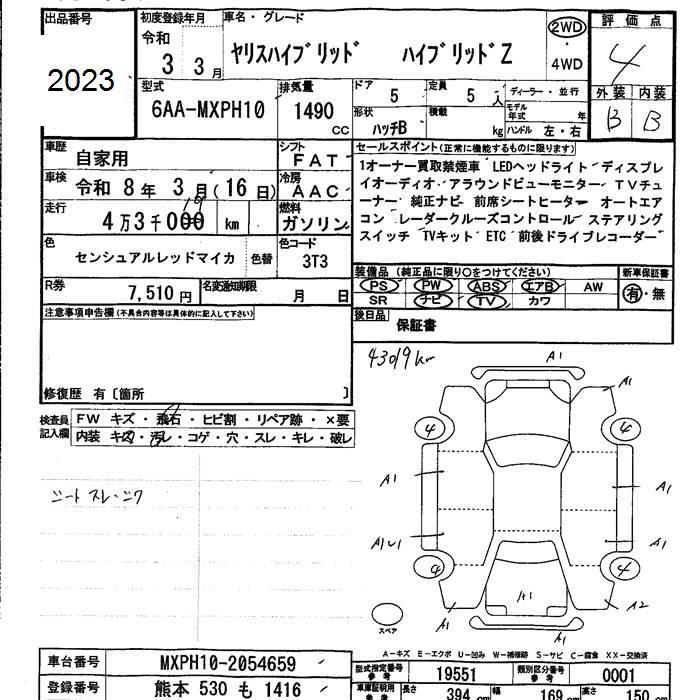 出品番号
2023
初度登録年月
令和
3 3月
車名・グレード
ヤリスハイブリッド ハイブリッドZ
2WD
・
4WD
評価点
4
外装 内装
B B
型式
6AA-MXPH10
排気量
1490
CC
ドア
5
定員
5 人
形状
ハッチB
積載
kg
ディーラー・並行
モデル年式 年
ハンドル 左・右
車歴
自家用
シフト
FAT
車検
令和 8年 3月(16日)
冷房
AAC
走行
4万3千000 km
19
燃料
ガソリン
色
センシュアルレッドマイカ
色替
色コード
3T3
R券
7,510円
名変通知期限
月 日
セールスポイント(正常に機能するものに限ります)
1オーナー買取禁煙車 LEDヘッドライト ディスプレ
イオーディオ アラウンドビューモニター TVチュ
ーナー 純正ナビ 前席シートヒーター オートエア
コン レーダークルーズコントロール ステアリング
スイッチ TVキット ETC 前後ドライブレコーダー
装備品(純正品に限り○をつけてください)
PS PW ABS エアB AW
SR ナビ TV カワ
新車保証書
有・無
後日品
保証書
注意事項申告欄(不具合内容等は具体的に記入して下さい)
修復歴 有〔箇所 〕
検査員
記入欄
FW キズ・飛石・ヒビ割・リペア跡・×要
内装 キズ・汚レ・コゲ・穴・スレ・キレ・破レ
シート スレ・シワ
43019km
A1
A1
4
4
A1
A1
A1U1
A1
4
4
A1
A1
A2
A1
スペア
A-キズ E-エクボ U-凹み W-補修跡 S-サビ C-腐食 XX-交換済
車台番号
MXPH10-2054659
登録番号
熊本 530 も 1416
型式指定番号
参考
19551
類別区分番号
参考
0001
車庫証明用
参考
長さ
394 cm
幅
169 cm
高さ
150 cm